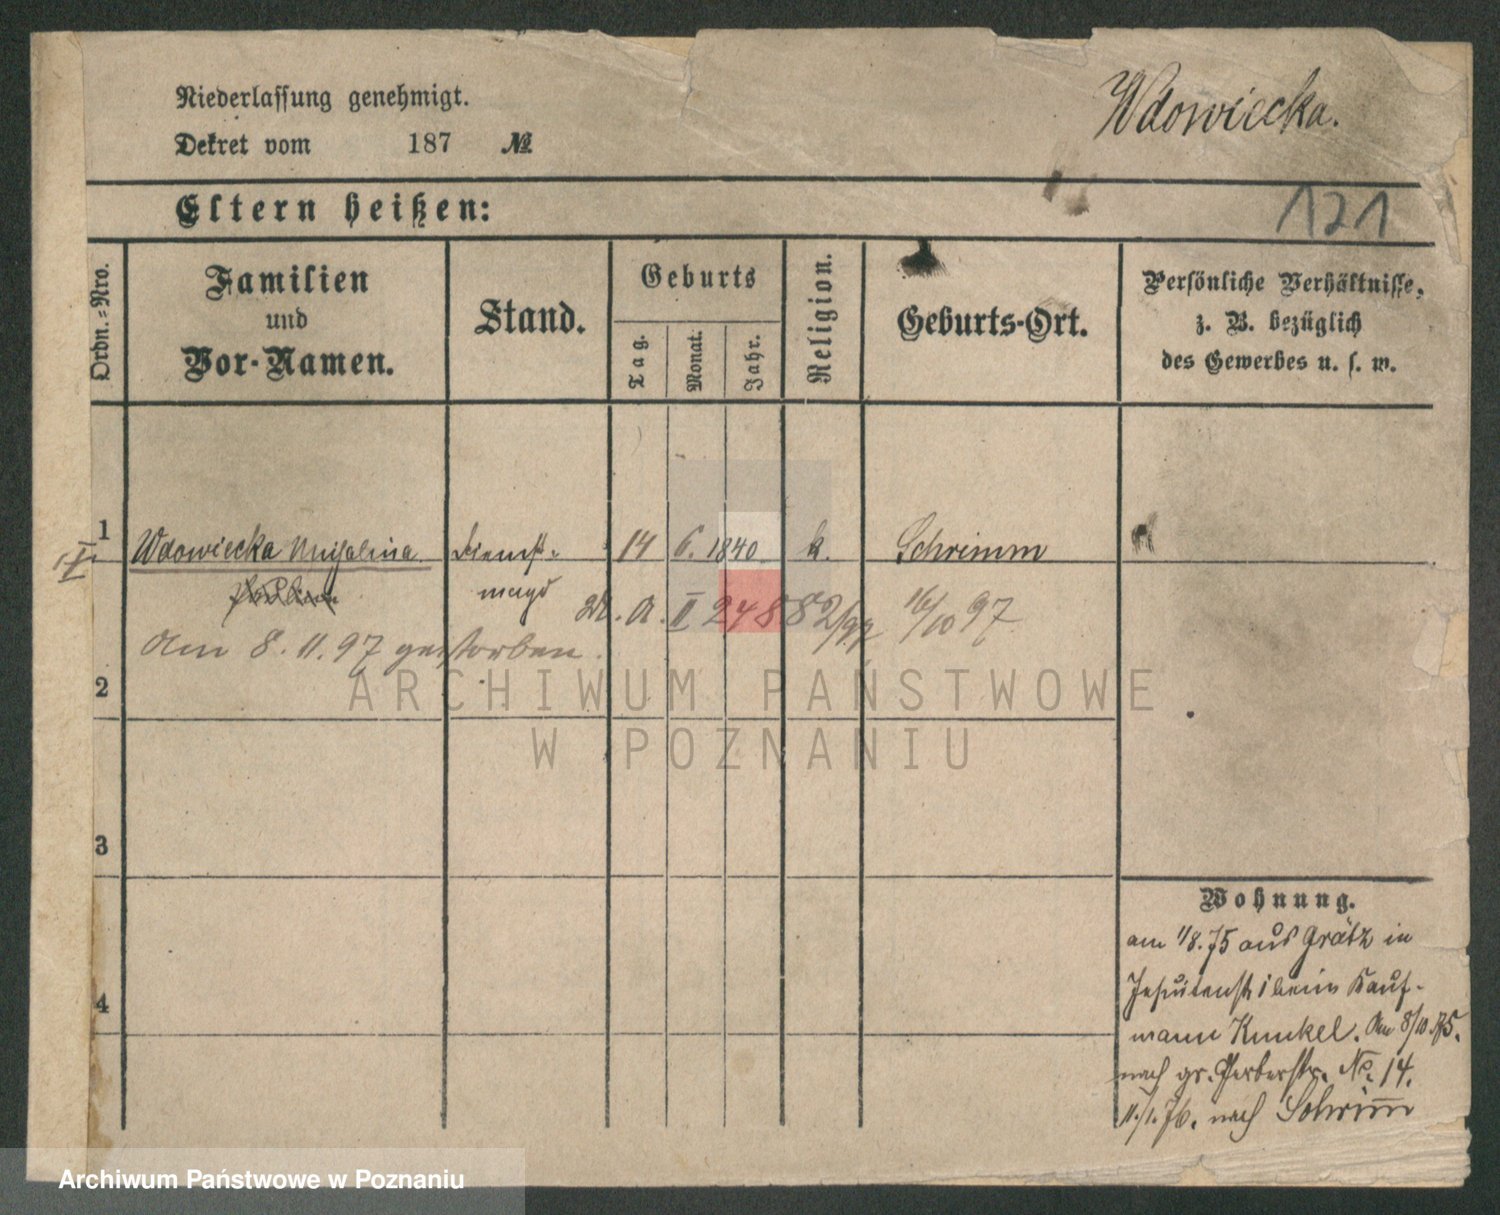 Niederlassung genehmigt.
Wdowiecka.
Dekret vom 187 №
121
Eltern heißen:
Ordn.-Nro.
Familien
und
Vor-Namen.
Stand.
Geburts
Tag.
Monat.
Jahr.
Religion.
Geburts-Ort.
Persönliche Verhältnisse,
z. B. bezüglich
des Gewerbes u. s. w.
1
Wdowiecka Michalina Dienst- 14 6. 1840 k. Schrimm
magd
II 248 82/97 16/10 97
Am 8. 11. 97 gestorben.
2
3
4
Wohnung.
am 1/8. 75 aus Grätz in
Jesuitenstr 1 beim Kauf-
mann Kunkel. Am 8/10. 75.
nach gr. Gerberstr. No. 14.
11./1. 76. nach Schrimm
ARCHIWUM PAŃSTWOWE
W POZNANIU
Archiwum Państwowe w Poznaniu